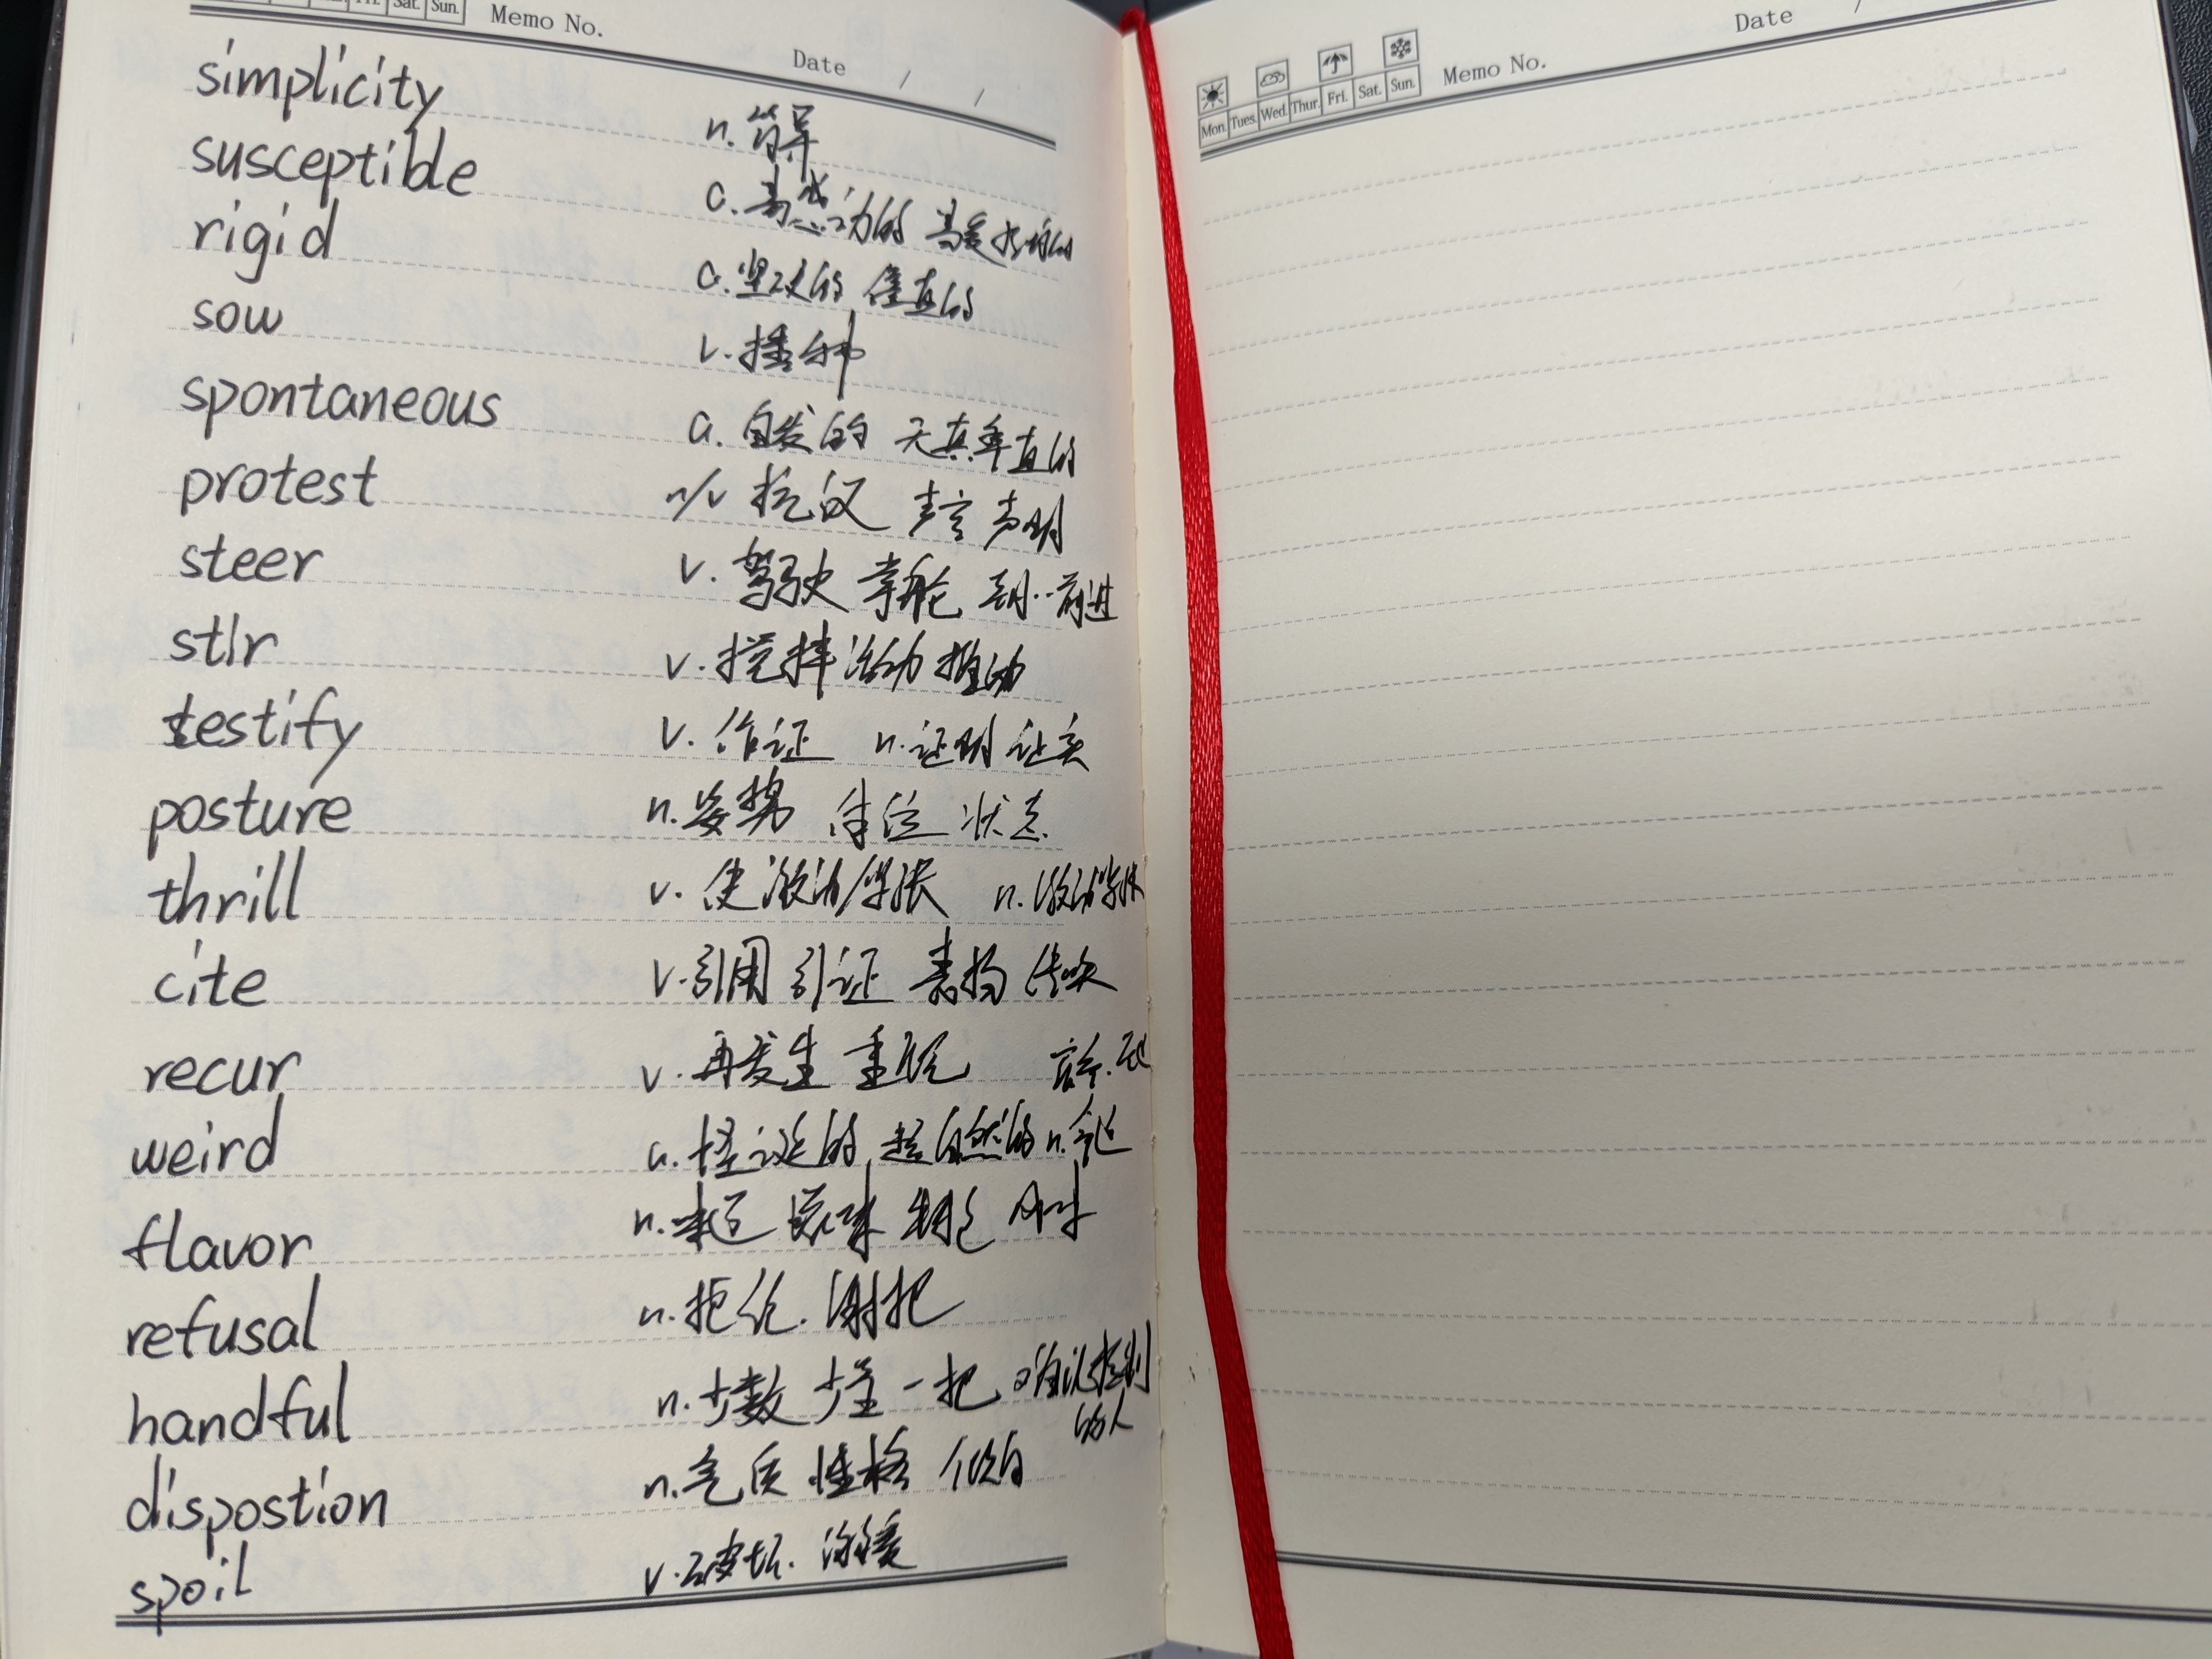 Fri. Sat. Sun. Memo No.
Date / /
simplicity n. 简单
susceptible a. 易感动的 易受影响的
rigid a. 坚硬的 僵直的
sow v. 播种
spontaneous a. 自发的 天真率直的
protest n/v 抗议 声言 声明
steer v. 驾驶 掌舵 朝··前进
stir v. 搅拌 活动 推动
testify v. 作证 n. 证明 证实
posture n. 姿势 体位 状态
thrill v. 使激动/紧张 n. 激动紧张
cite v. 引用 引证 表扬 传唤
recur v. 再发生 重现
weird a. 怪诞的 超自然的 n. 命运
flavor n. 味道 风味
refusal n. 拒绝. 谢拒
handful n. 少数 少量 一把 难以控制
的人
dispostion n. 气质 性格 倾向
spoil v. 破坏. 溺爱
Date /
Mon. Tues. Wed. Thur. Fri. Sat. Sun. Memo No.